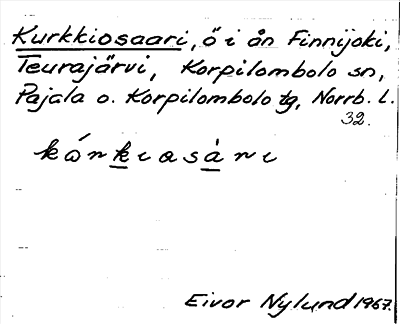 Kurkkiosaari, ö i ån Finnijoki,
Teurajärvi, Korpilombolo sn,
Pajala o. Korpilombolo tg, Norrb. L.
32.
kórkiosàri
Eivor Nylund 1967.